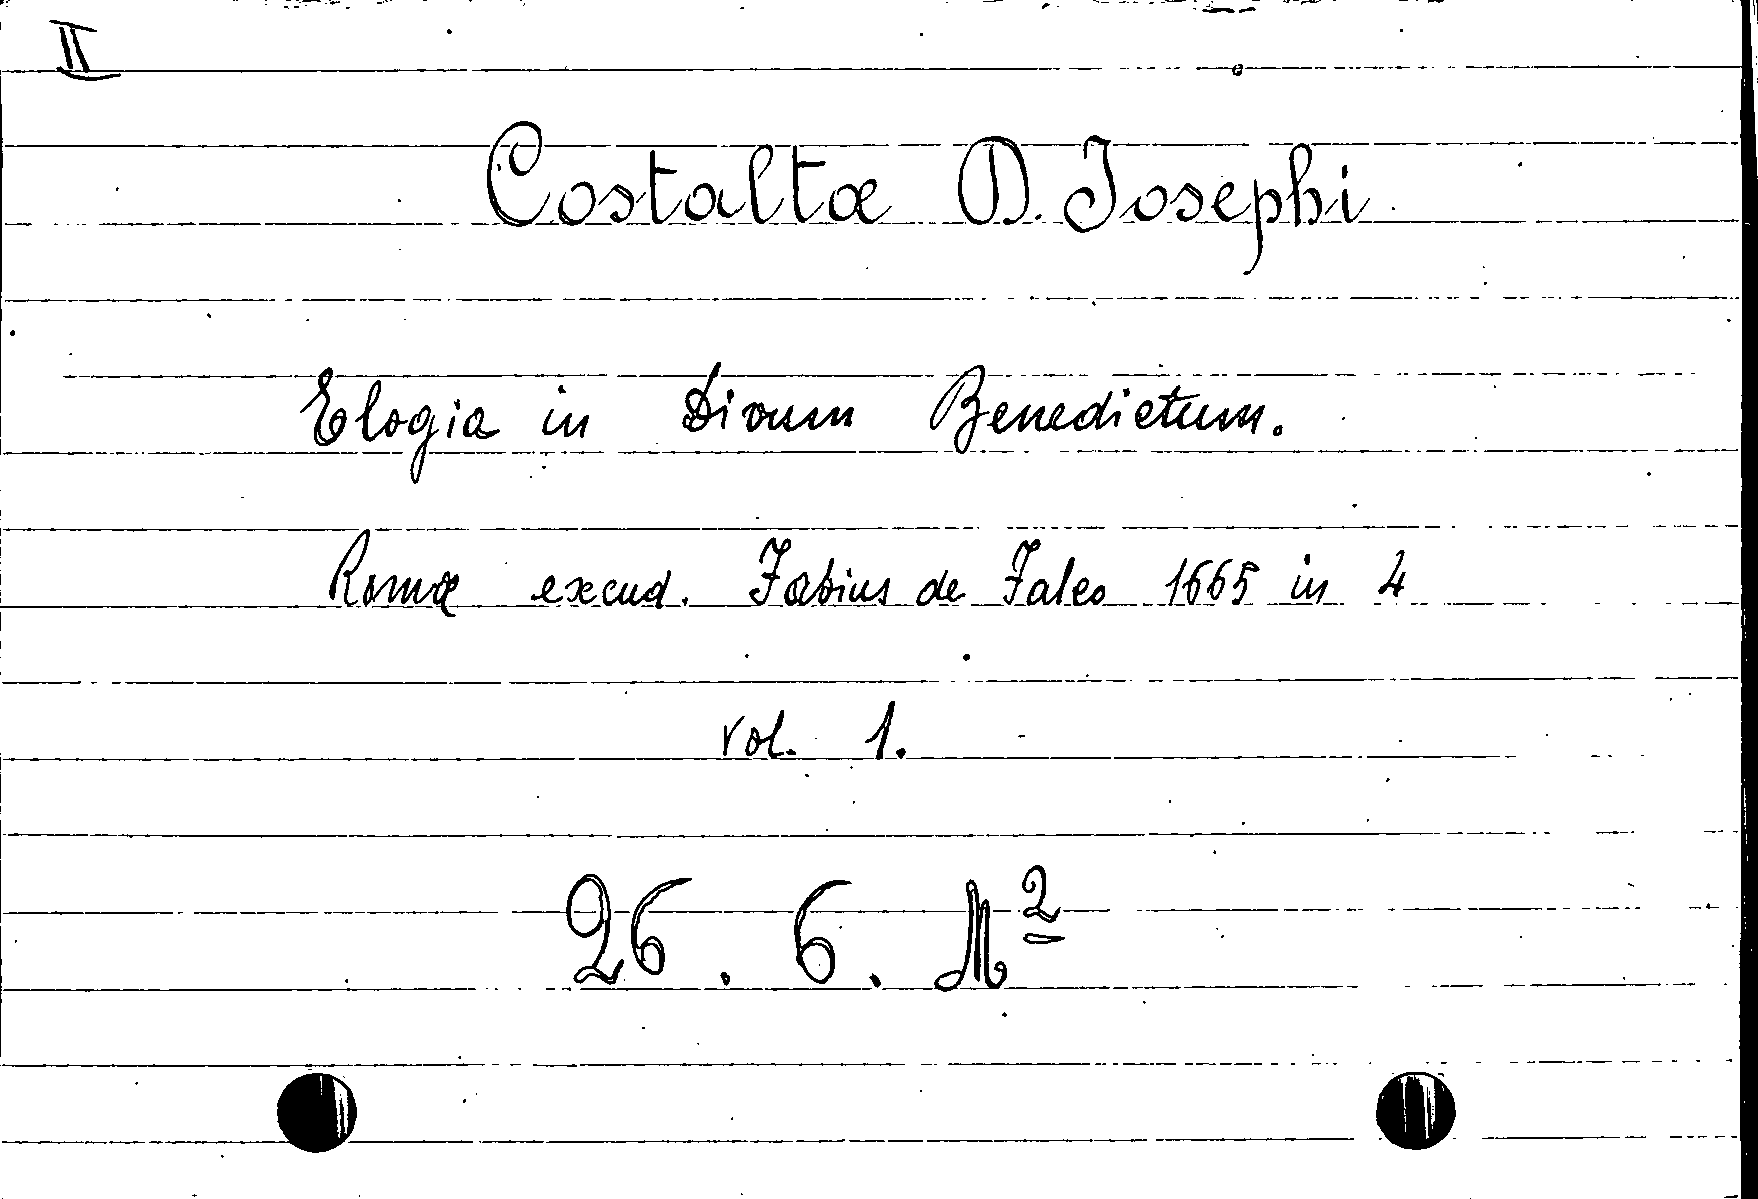 II
Costaltæ D. Josephi
Elogia in Divum Benedictum.
Romæ excud. Fabius de Falco 1665 in 4
vol. 1.
26. 6. M2